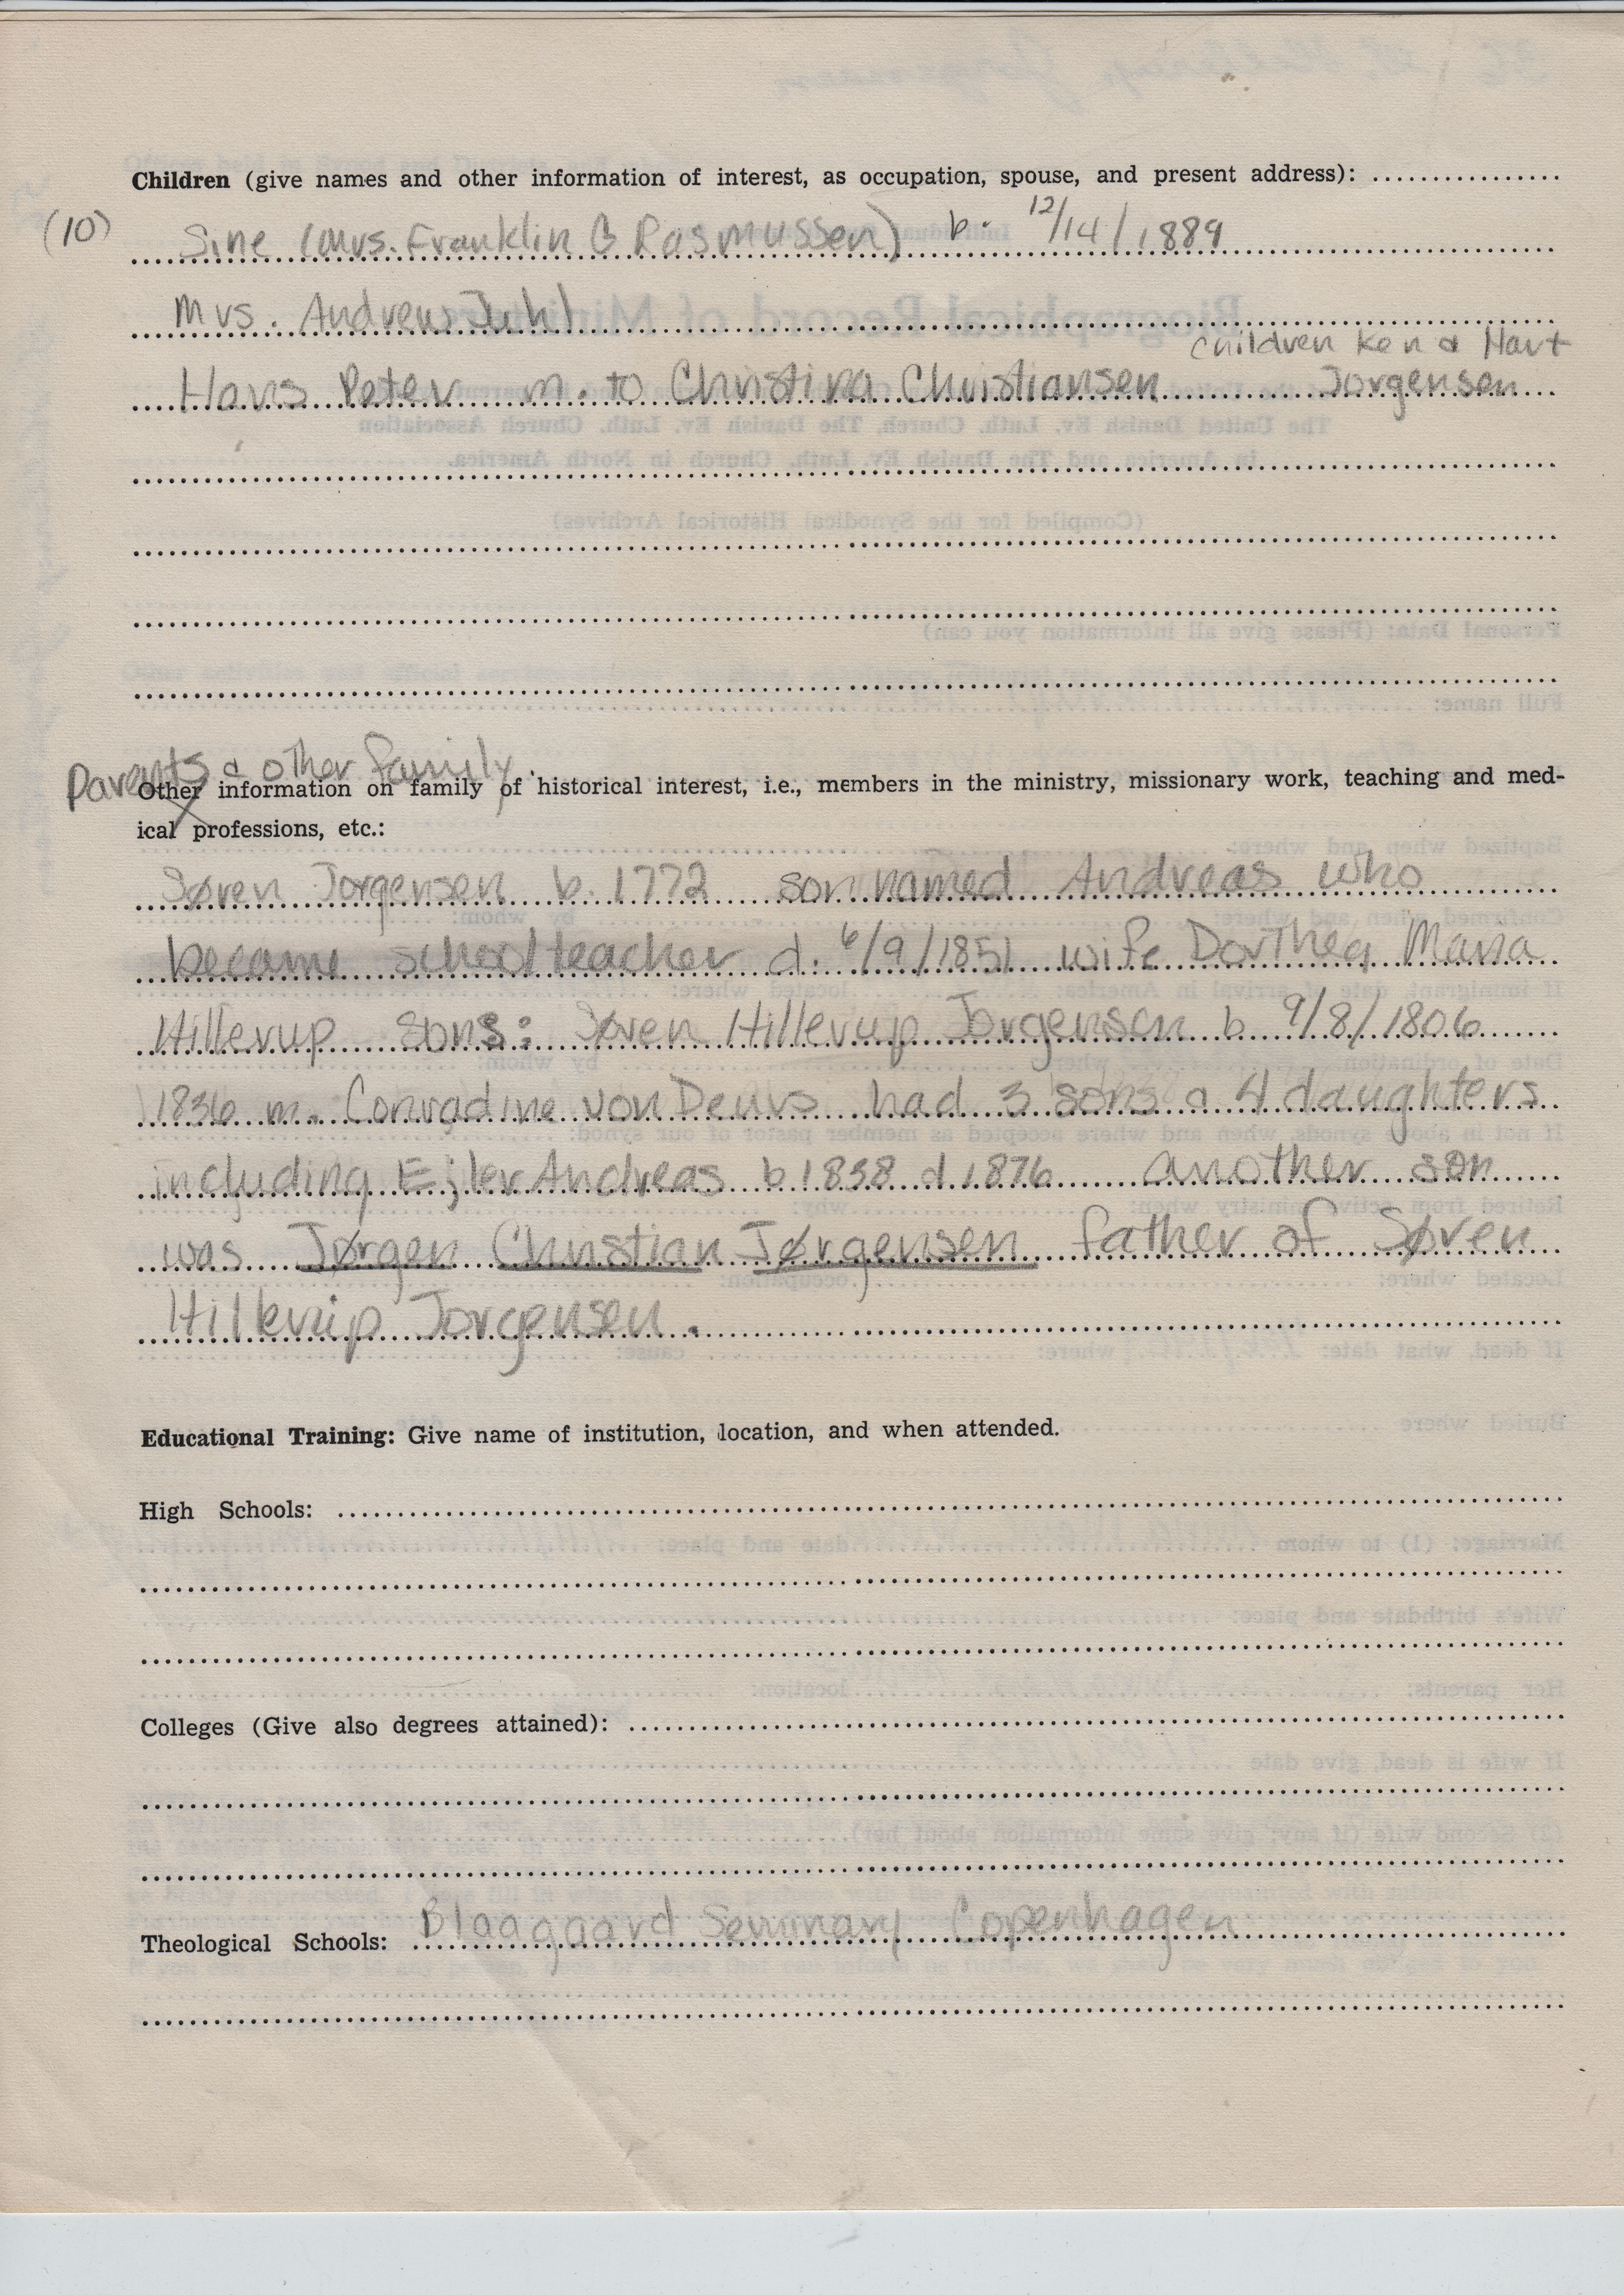 Children (give names and other information of interest, as occupation, spouse, and present address): ................
(10) Sine (Mrs. Franklin B Rasmussen) b. 12/14/1889
Mrs. Andrew Juhl
Children Ken & Hart
Hans Peter m. to Christina Christiansen Jorgensen
Parents & other family
Other information on family of historical interest, i.e., members in the ministry, missionary work, teaching and med-
ical professions, etc.:
Søren Jorgensen b. 1772 son named Andreas who
became schoolteacher d. 6/9/1851 wife Dorthea Maria
Hillerup sons: Søren Hillerup Jorgensen b 9/8/1806
1836 m. Conradine von Deurs had 3 sons & 4 daughters
including Ejler Andreas b 1838 d 1876 another son
was Jørgen Christian Jørgensen father of Søren
Hillerup Jorgensen.
Educational Training: Give name of institution, location, and when attended.
High Schools:
Colleges (Give also degrees attained):
Theological Schools: Blaagaard Seminary Copenhagen